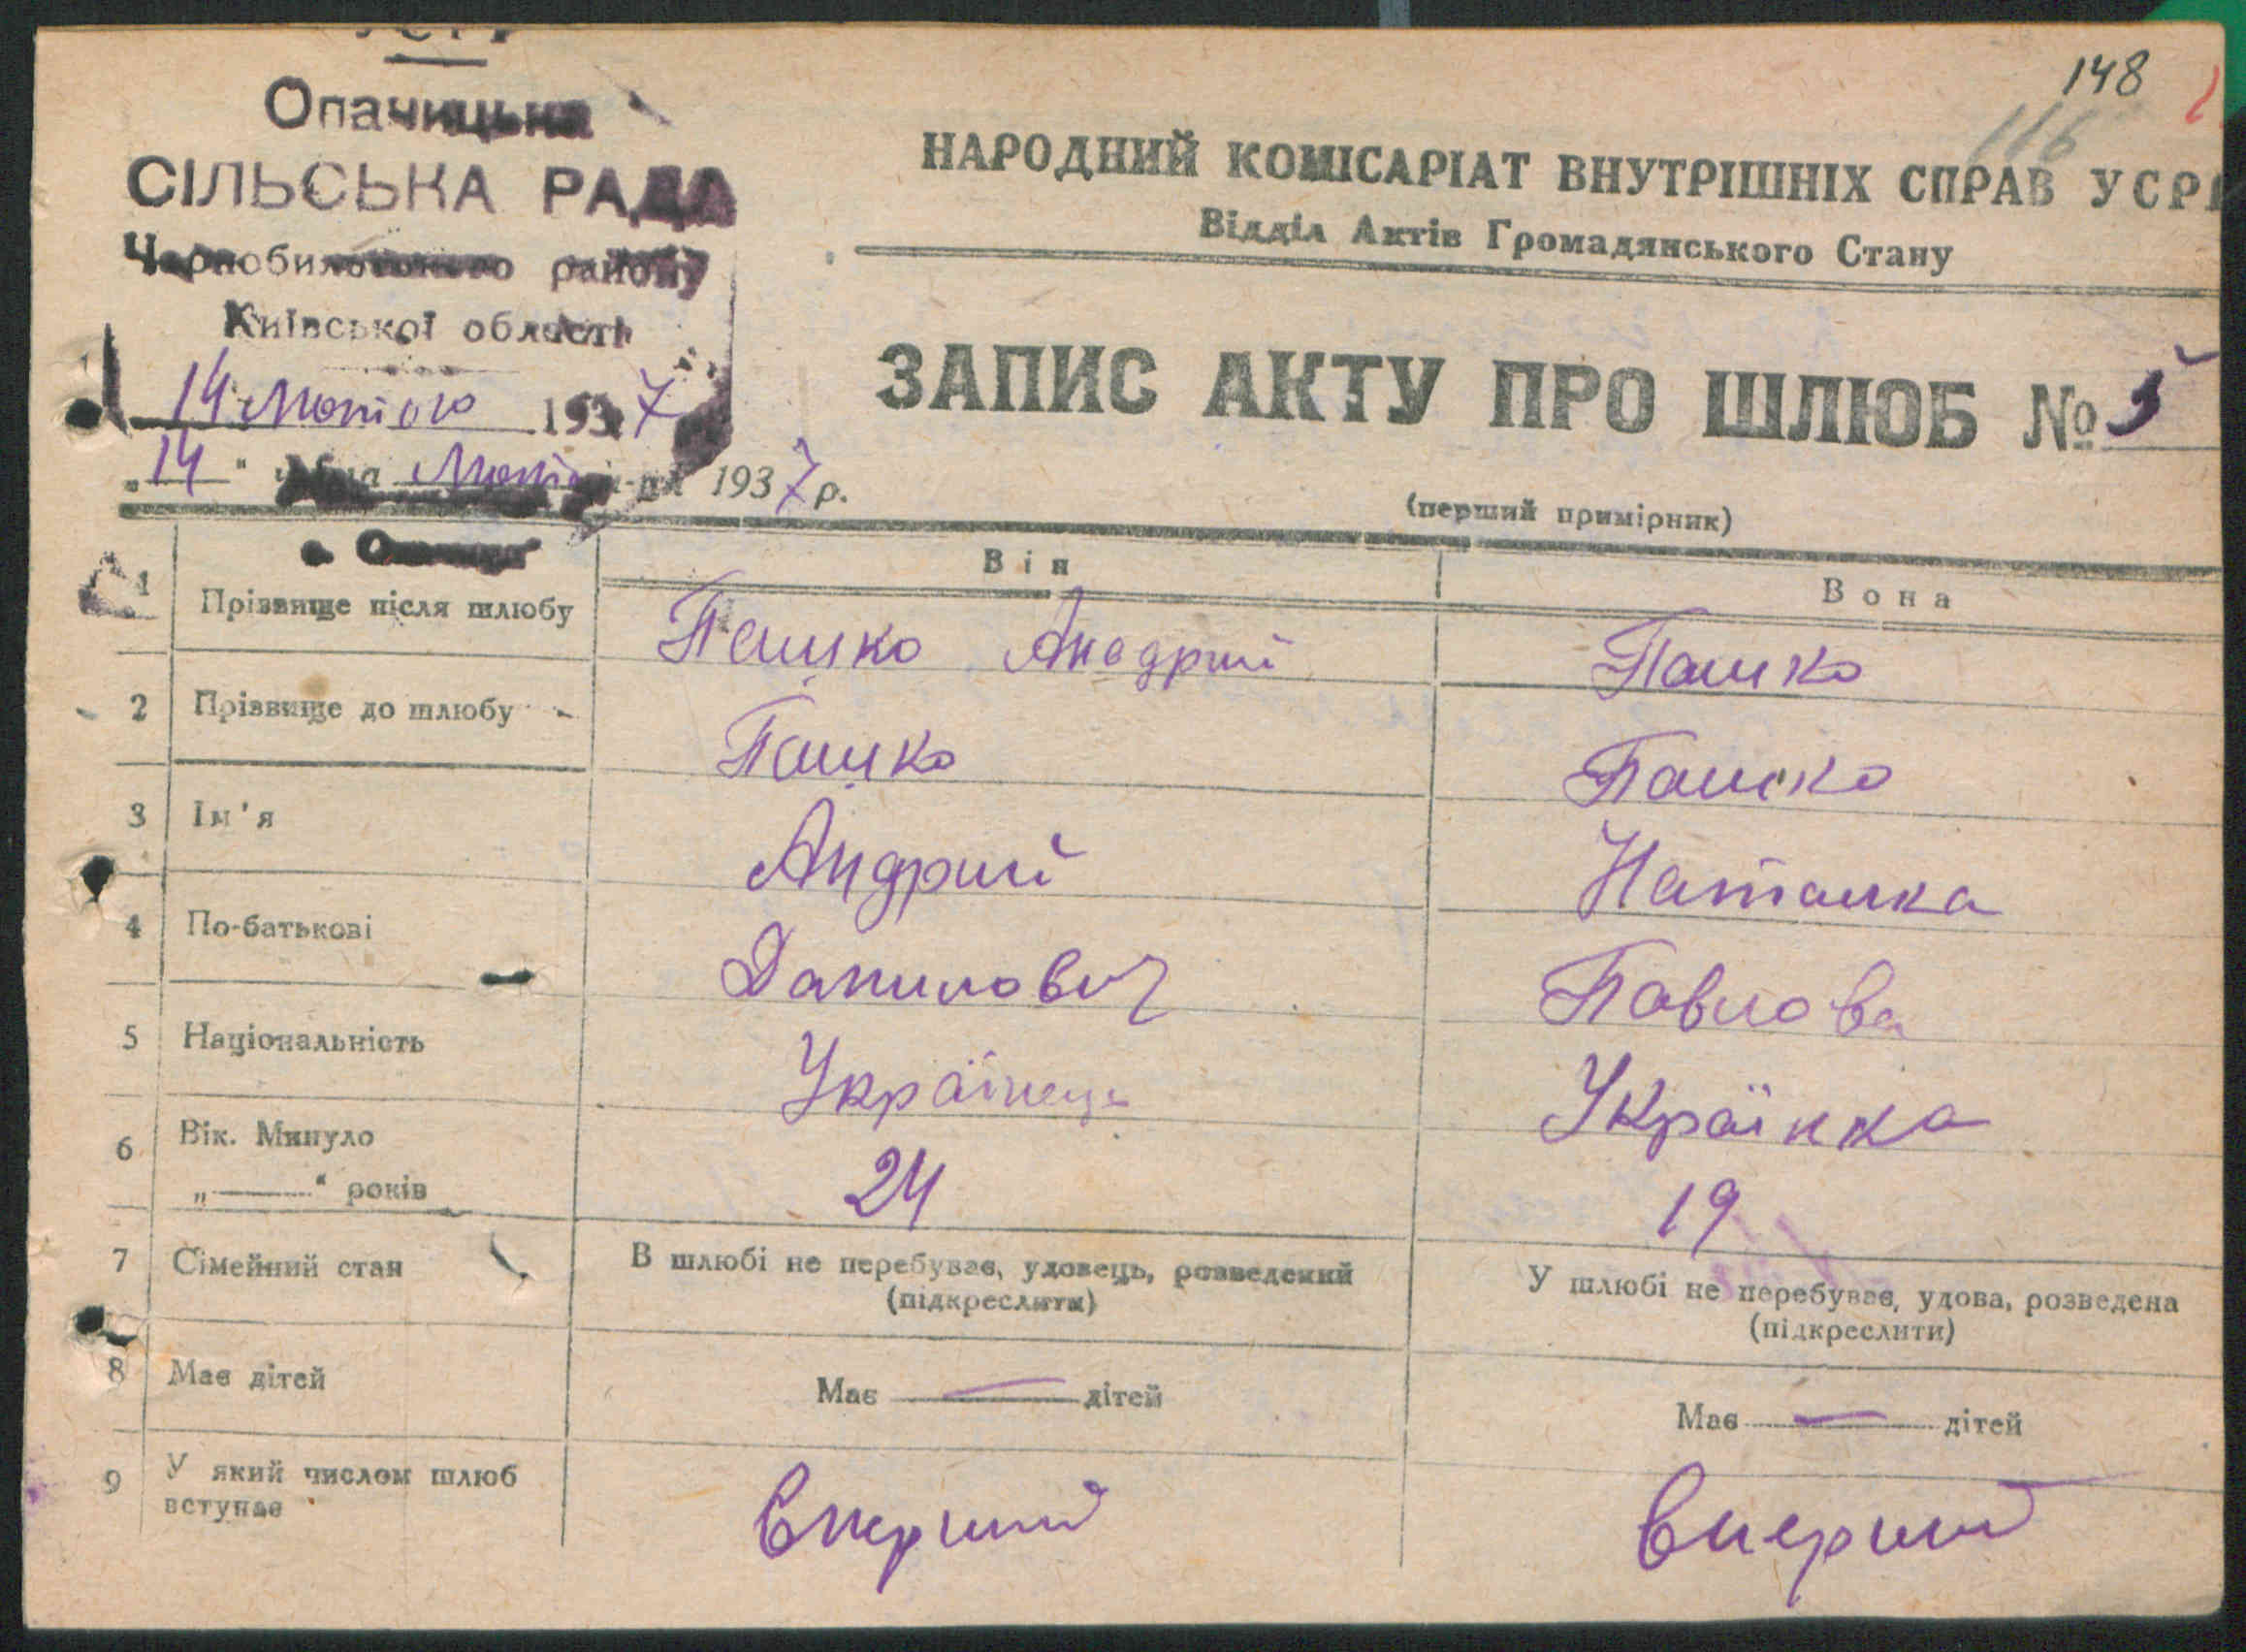 УСРР
Опачицька
СІЛЬСЬКА РАДА
Чорнобильського району
Київської області
14 Лютого 1937
„14“ Лютого 1937 р.
148
116
НАРОДНИЙ КОМІСАРІАТ ВНУТРІШНІХ СПРАВ УСРР
Відділ Актів Громадянського Стану
ЗАПИС АКТУ ПРО ШЛЮБ № 5
(перший примірник)
Він Вона
1 Прізвище після шлюбу Пашко Анодрий Пашко
2 Прізвище до шлюбу Пашко Пашко
3 Ім'я Андрий Наталка
4 По-батькові Данилович Павлова
5 Національність Українець Українка
6 Вік. Минуло
„——“ років 24 19
7 Сімейний стан В шлюбі не перебуває, удовець, розведений У шлюбі не перебуває, удова, розведена
(підкреслити) (підкреслити)
8 Має дітей Має — дітей Має — дітей
9 У який числом шлюб
вступає Вперший Вперший